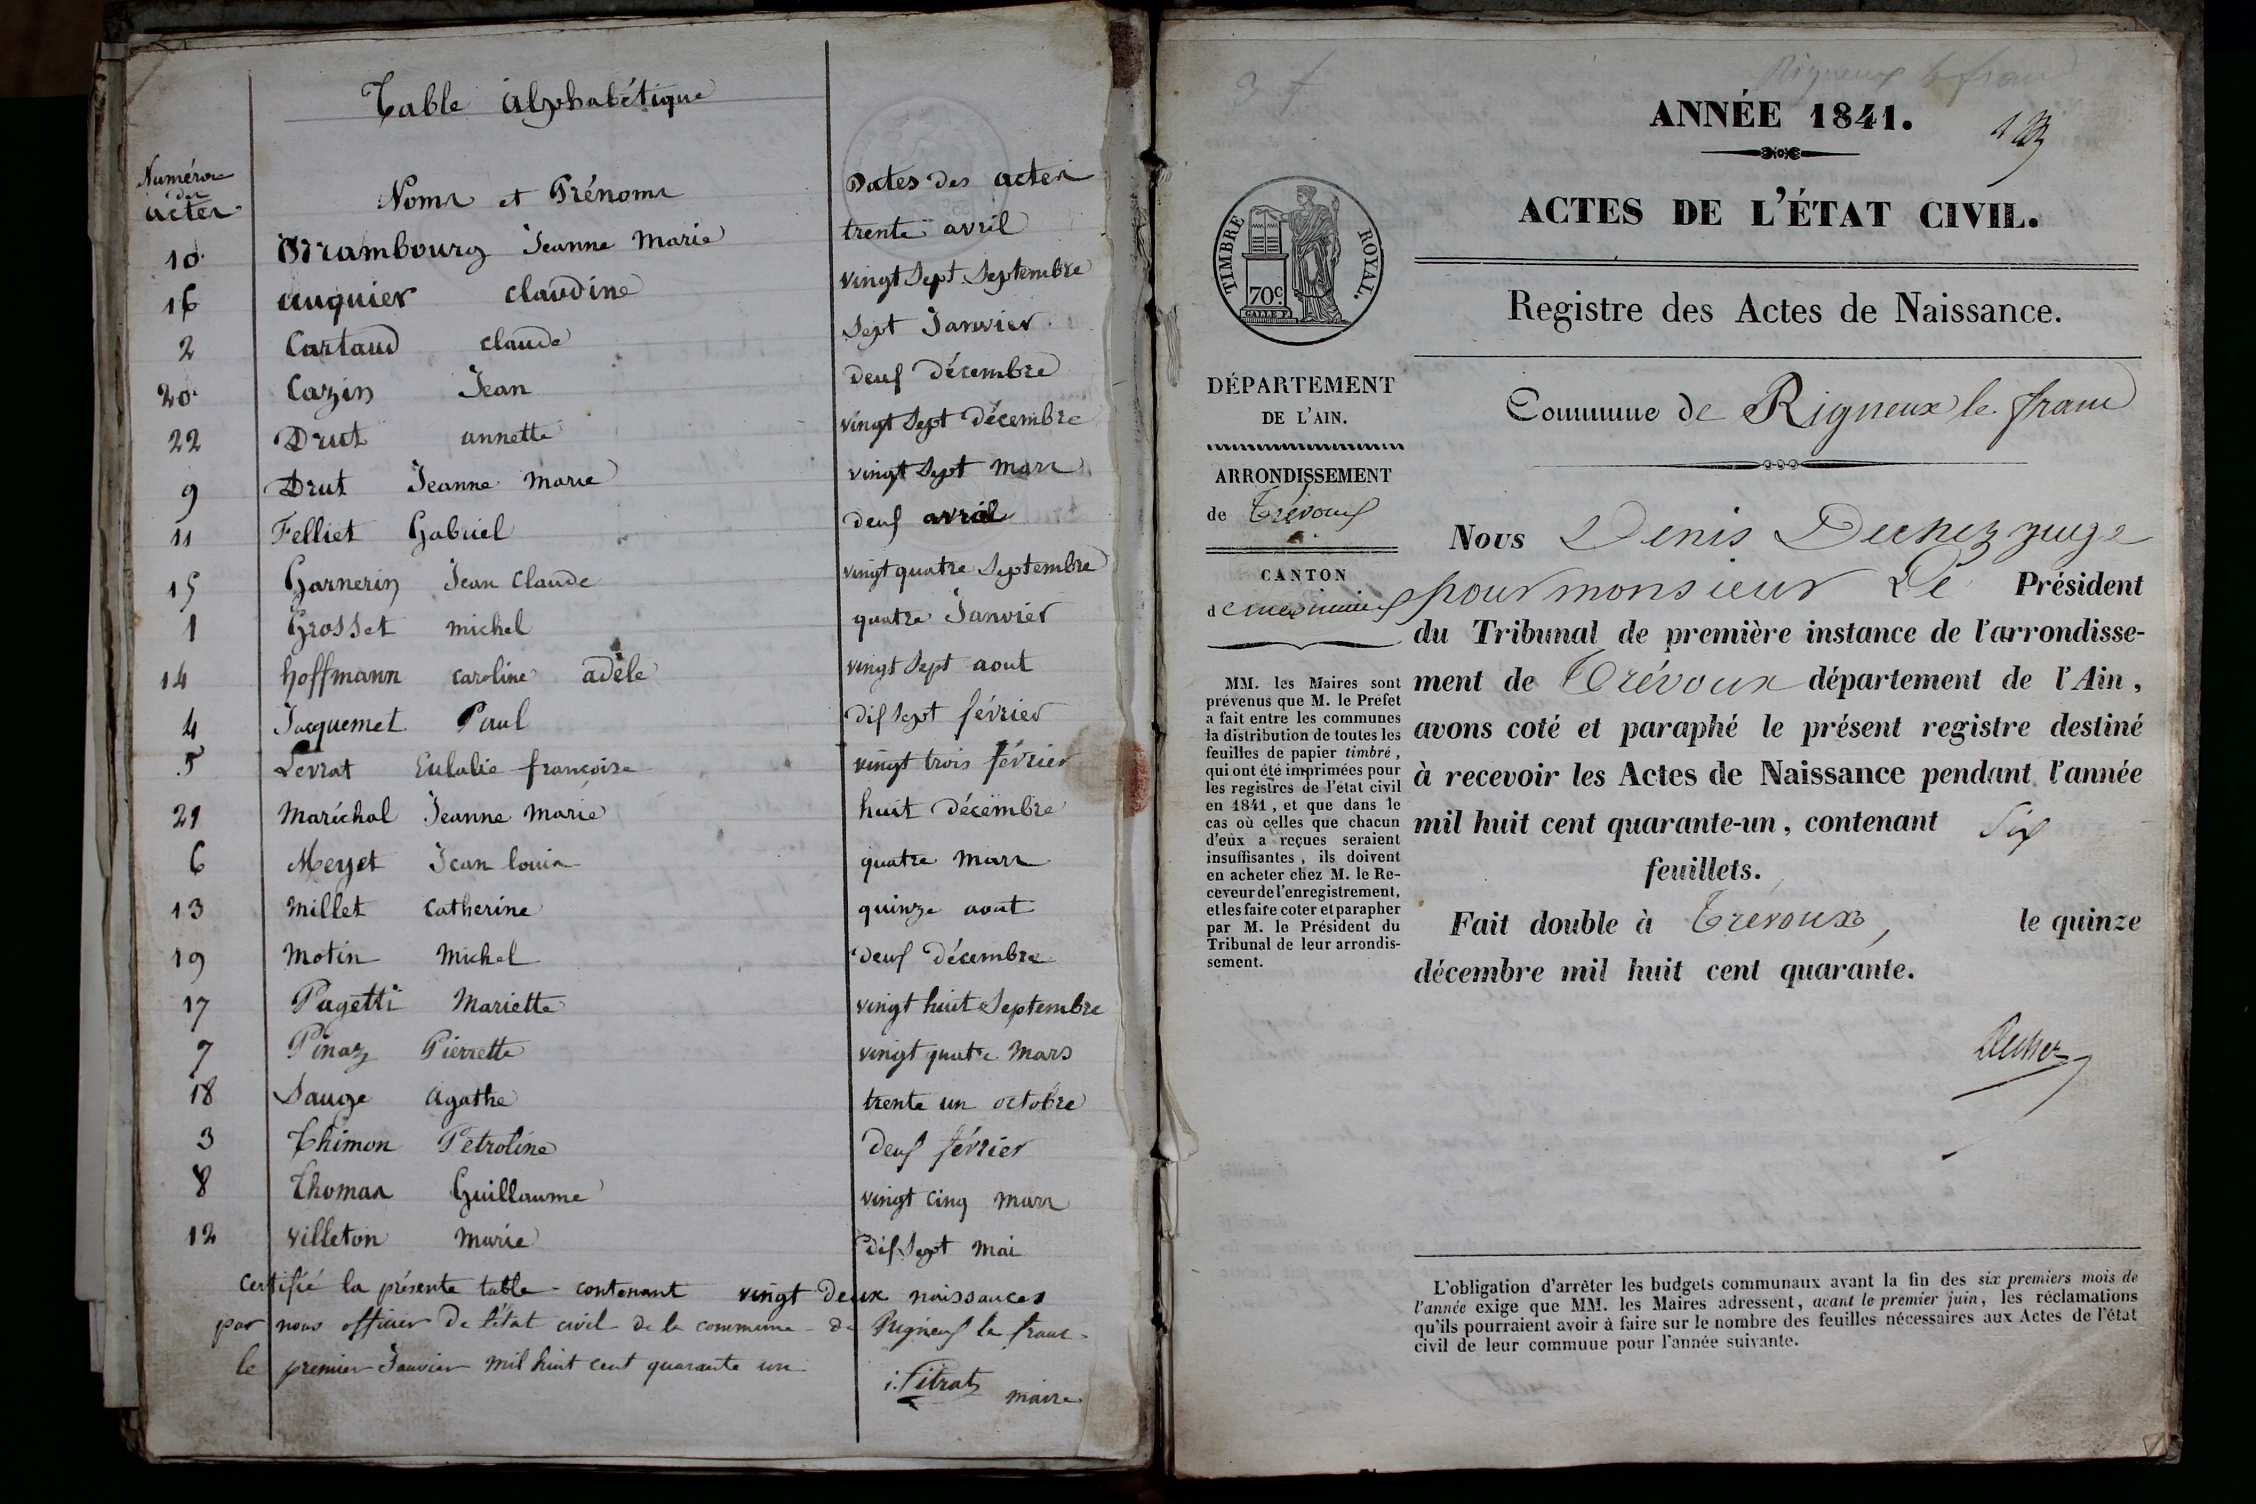 Table Alphabétique
Numéros
des
actes
Noms et Prénoms
Dates des actes
10 Brambourg Jeanne Marie trente avril
16 auquier claudine vingt Sept Septembre
2 Cartaud claude Sept Janvier
20 Cazin Jean deux décembre
22 Drut annette vingt Sept décembre
9 Drut Jeanne Marie vingt Sept mars
11 Felliet Gabriel deux avril
15 Garnerin Jean Claude vingt quatre Septembre
1 Grosset michel quatre Janvier
14 hoffmann caroline adèle vingt Sept aout
4 Jacquemet Paul dix Sept février
5 Levrat Eulalie françoise vingt trois février
21 Maréchal Jeanne Marie huit décembre
6 Meyet Jean louis quatre mars
13 Millet Catherine quinze aout
19 Motin Michel deux décembre
17 Pagetti Mariette vingt huit Septembre
7 Pinaz Pierrette vingt quatre Mars
18 Sauge Agathe trente un octobre
3 Thimon Pétroline deux février
8 Thomas Guillaume vingt cinq mars
12 Villeton Marie dix Sept mai
Certifié la présente table contenant vingt deux naissances
par nous officier de l'état civil de la commune de Rigneux le franc
le premier Janvier mil huit cent quarante un
maire
Rigneux le franc
ANNÉE 1841.
ACTES DE L'ÉTAT CIVIL.
Registre des Actes de Naissance.
Commune de Rigneux le franc
TIMBRE ROYAL.
70c
DÉPARTEMENT
DE L'AIN.
ARRONDISSEMENT
de Trévoux
CANTON
de meximieux
MM. les Maires sont
prévenus que M. le Préfet
a fait entre les communes
la distribution de toutes les
feuilles de papier timbré,
qui ont été imprimées pour
les registres de l'état civil
en 1841, et que dans le
cas où celles que chacun
d'eux a reçues seraient
insuffisantes, ils doivent
en acheter chez M. le Re-
ceveur de l'enregistrement,
et les faire coter et parapher
par M. le Président du
Tribunal de leur arrondis-
sement.
Nous Denis Dechez juge
pour monsieur Le Président
du Tribunal de première instance de l'arrondisse-
ment de Trévoux département de l'Ain,
avons coté et paraphé le présent registre destiné
à recevoir les Actes de Naissance pendant l'année
mil huit cent quarante-un, contenant Six
feuillets.
Fait double à Trevoux, le quinze
décembre mil huit cent quarante.
Dechez
L'obligation d'arrêter les budgets communaux avant la fin des six premiers mois de
l'année exige que MM. les Maires adressent, avant le premier juin, les réclamations
qu'ils pourraient avoir à faire sur le nombre des feuilles nécessaires aux Actes de l'état
civil de leur commune pour l'année suivante.